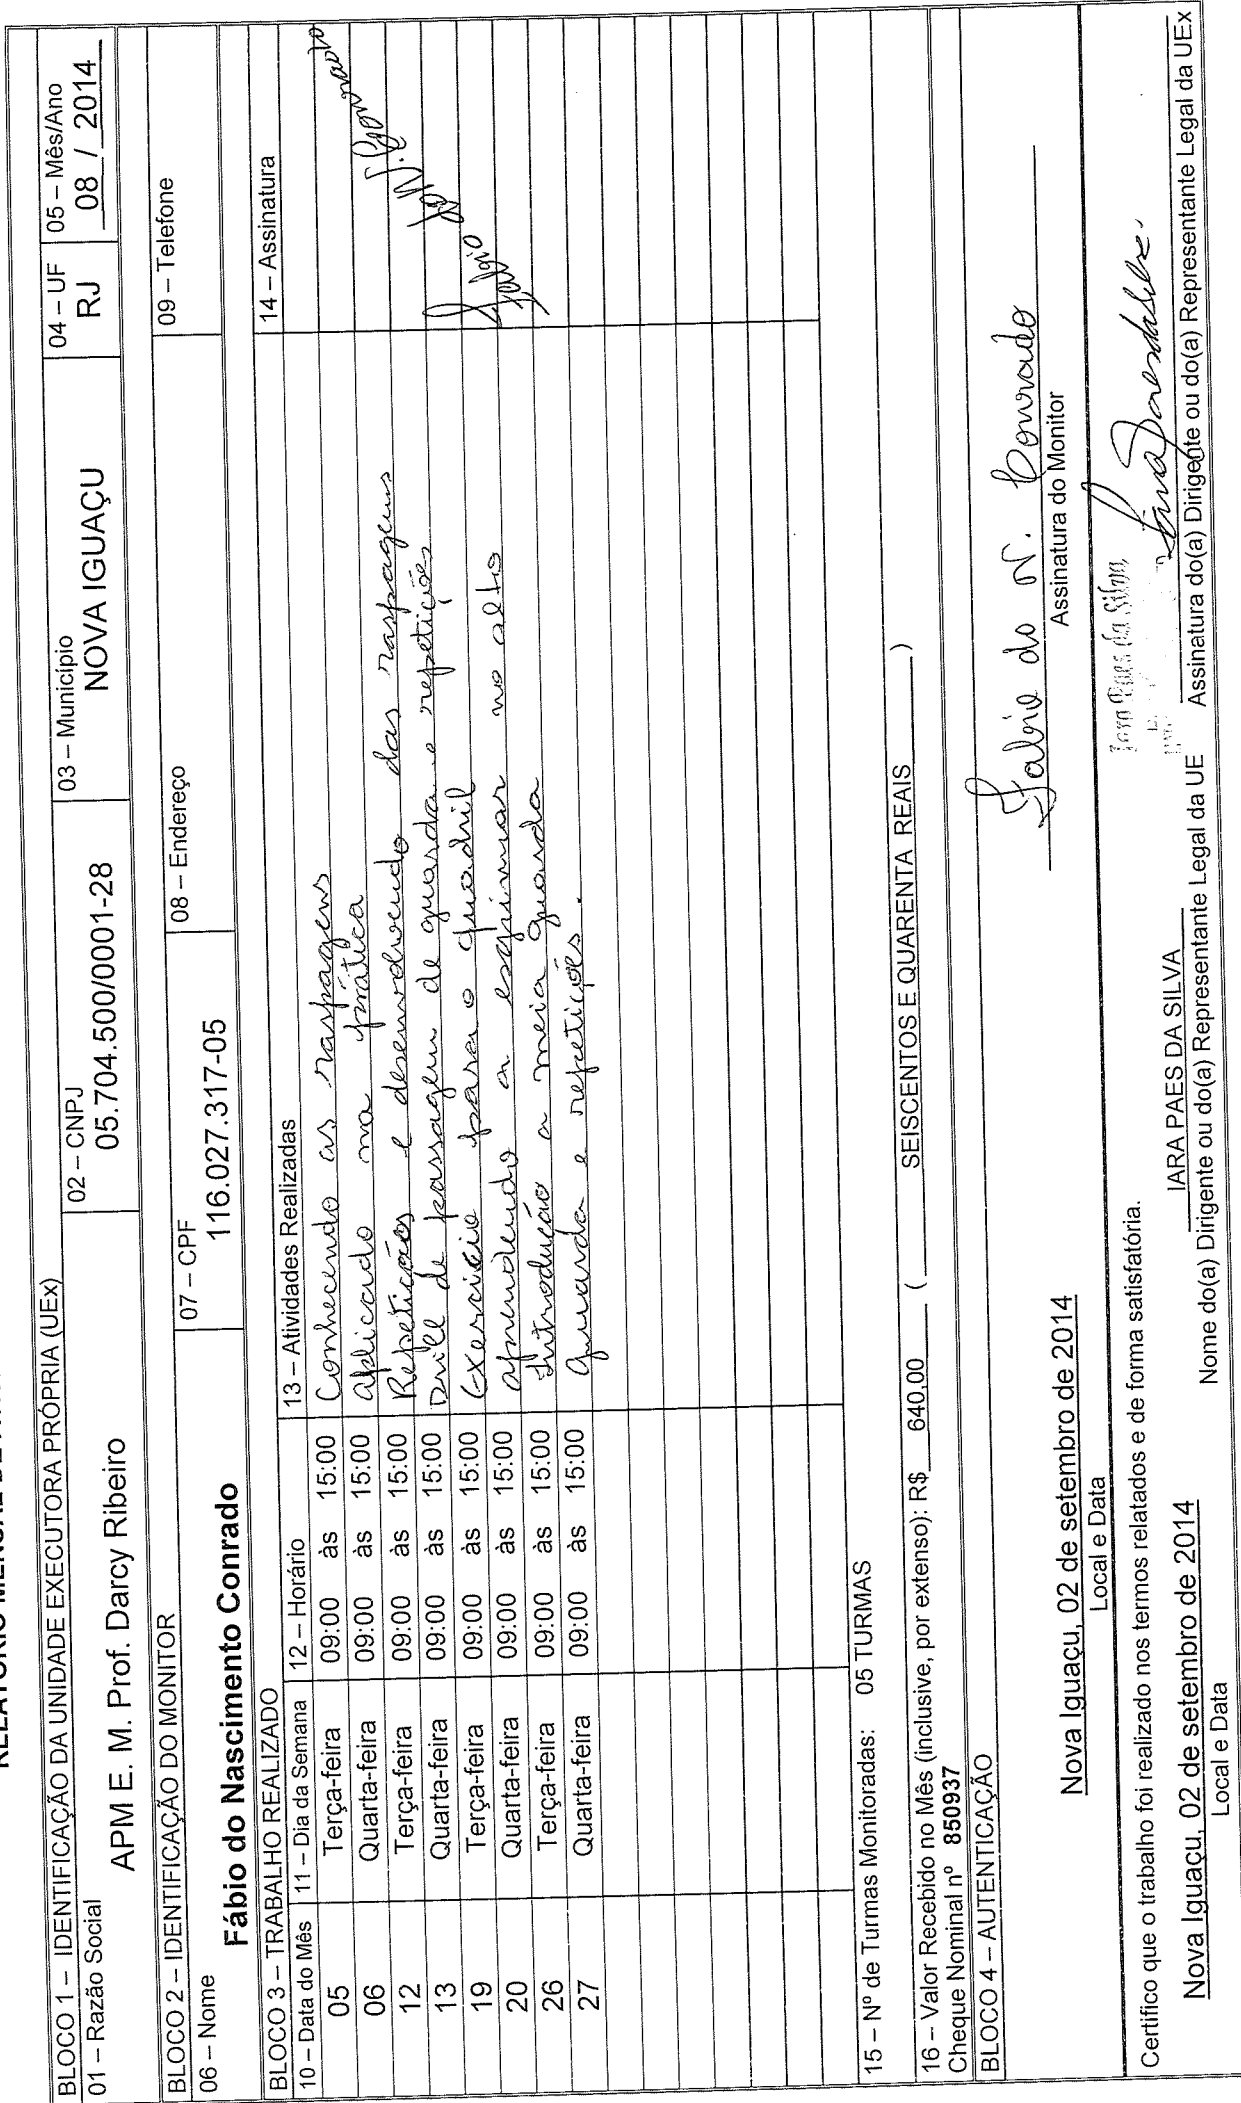 BLOCO 1 – IDENTIFICAÇÃO DA UNIDADE EXECUTORA PRÓPRIA (UEx)
01 – Razão Social
APM E. M. Prof. Darcy Ribeiro
02 – CNPJ
05.704.500/0001-28
03 – Município
NOVA IGUAÇU
04 – UF
RJ
05 – Mês/Ano
08 / 2014
BLOCO 2 – IDENTIFICAÇÃO DO MONITOR
06 – Nome
Fábio do Nascimento Conrado
07 – CPF
116.027.317-05
08 – Endereço
09 – Telefone
BLOCO 3 – TRABALHO REALIZADO
10 – Data do Mês 11 – Dia da Semana 12 – Horário 13 – Atividades Realizadas 14 – Assinatura
05 Terça-feira 09:00 às 15:00 Conhecendo as raspagens
06 Quarta-feira 09:00 às 15:00 Aplicado na prática
12 Terça-feira 09:00 às 15:00 Repetições e desenvolvendo das raspagens
13 Quarta-feira 09:00 às 15:00 Drill de passagem de guarda e repetições
19 Terça-feira 09:00 às 15:00 Exercício para o quadril
20 Quarta-feira 09:00 às 15:00 aprendendo a esgrimar no alto
26 Terça-feira 09:00 às 15:00 Introdução a meia guarda
27 Quarta-feira 09:00 às 15:00 Guarda e repetições.
15 – Nº de Turmas Monitoradas: 05 TURMAS
16 – Valor Recebido no Mês (inclusive, por extenso): R$ 640,00 ( SEISCENTOS E QUARENTA REAIS )
Cheque Nominal nº 850937
BLOCO 4 – AUTENTICAÇÃO
Nova Iguaçu, 02 de setembro de 2014
Local e Data
Fabio do N. Conrado
Assinatura do Monitor
Certifico que o trabalho foi realizado nos termos relatados e de forma satisfatória.
Nova Iguaçu, 02 de setembro de 2014
Local e Data
IARA PAES DA SILVA
Nome do(a) Dirigente ou do(a) Representante Legal da UE
Iara Paes da Silva
Assinatura do(a) Dirigente ou do(a) Representante Legal da UEx